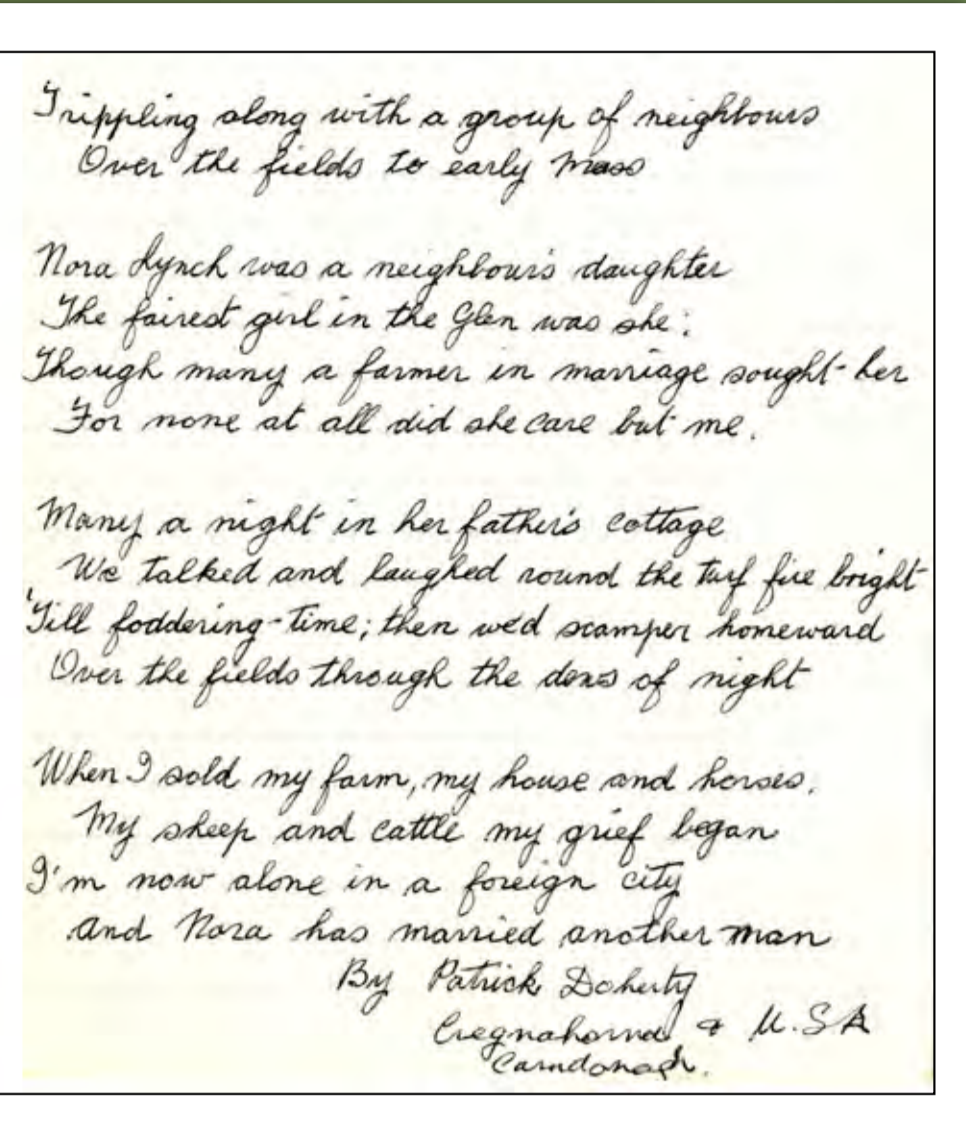 Trippling along with a group of neighbours
Over the fields to early Mass
Nora Lynch was a neighbour's daughter
The fairest girl in the Glen was she;
Though many a farmer in marriage sought her
For none at all did she care but me.
Many a night in her father's cottage
We talked and laughed round the turf fire bright
'Till foddering-time; then we'd scamper homeward
Over the fields through the dews of night
When I sold my farm, my house and horses,
My sheep and cattle my grief began
I'm now alone in a foreign city
And Nora has married another man
By Patrick Doherty
Cregnahorna & U.S.A
Carndonagh.